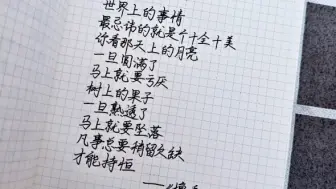 世界上的事情
最忌讳的就是个十全十美
你看那天上的月亮
一旦圆满了
马上就要亏厌
树上的果子
一旦熟透了
马上就要坠落
凡事总要稍留欠缺
才能持恒